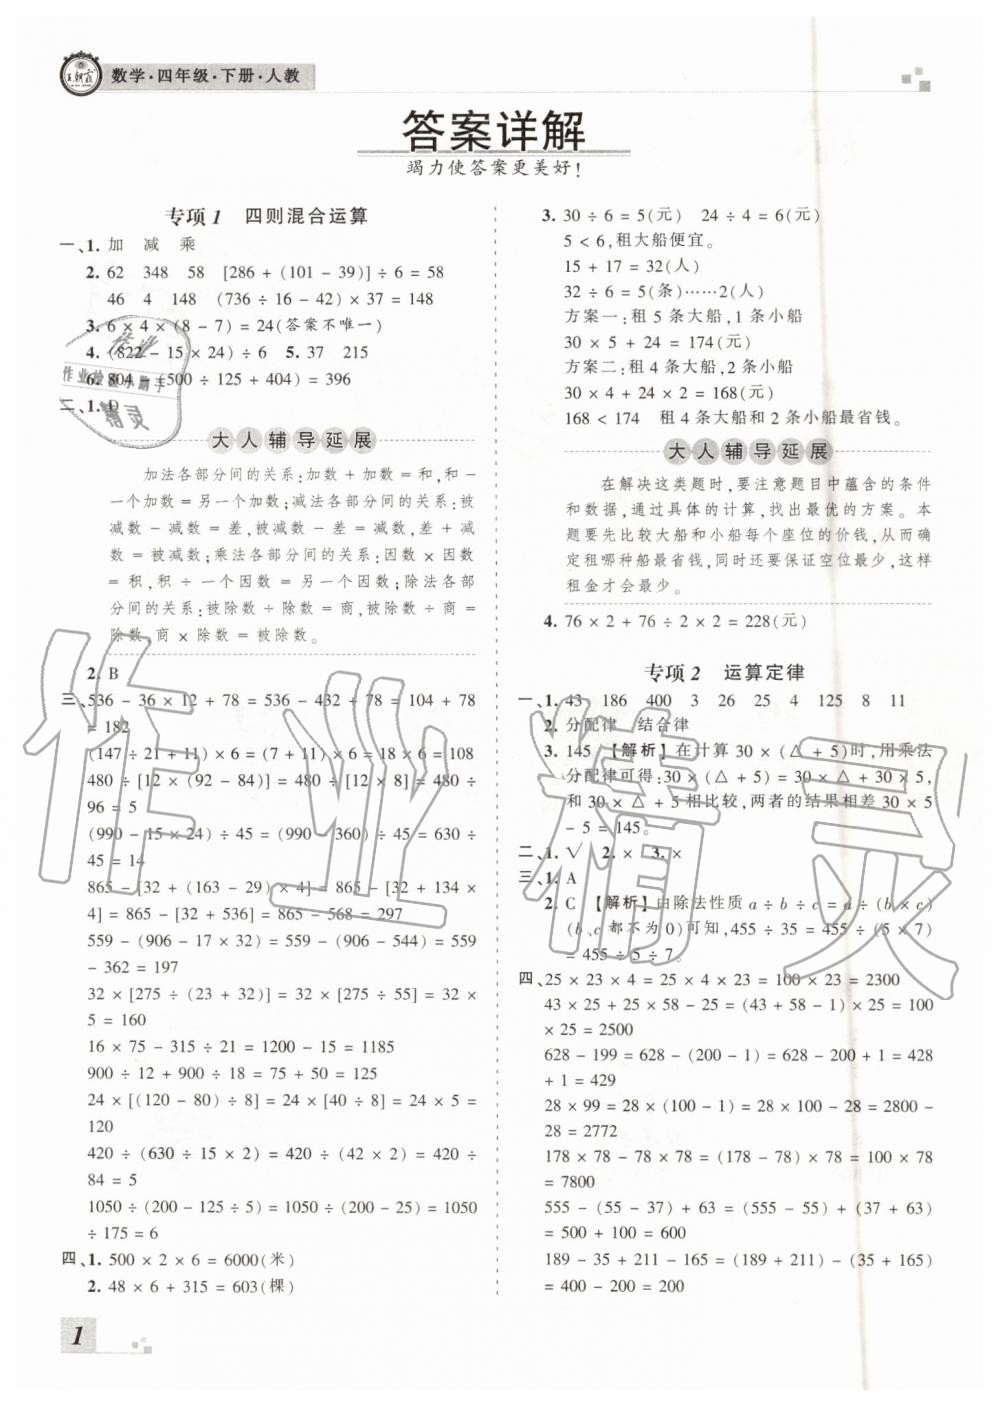 王朝霞
数学·四年级·下册·人教
答案详解
竭力使答案更美好!
专项1 四则混合运算
一、1. 加 减 乘
2. 62 348 58 [286 + (101 - 39)] ÷ 6 = 58
46 4 148 (736 ÷ 16 - 42) × 37 = 148
3. 6 × 4 × (8 - 7) = 24(答案不唯一)
4. (822 - 15 × 24) ÷ 6 5. 37 215
6. 804 - (500 ÷ 125 + 404) = 396
二、1. D
大人辅导延展
加法各部分间的关系:加数 + 加数 = 和,和 -
一个加数 = 另一个加数;减法各部分间的关系:被
减数 - 减数 = 差,被减数 - 差 = 减数,差 + 减
数 = 被减数;乘法各部分间的关系:因数 × 因数
= 积,积 ÷ 一个因数 = 另一个因数;除法各部
分间的关系:被除数 ÷ 除数 = 商,被除数 ÷ 商 =
除数,商 × 除数 = 被除数。
2. B
三、536 - 36 × 12 + 78 = 536 - 432 + 78 = 104 + 78
= 182
(147 ÷ 21 + 11) × 6 = (7 + 11) × 6 = 18 × 6 = 108
480 ÷ [12 × (92 - 84)] = 480 ÷ [12 × 8] = 480 ÷
96 = 5
(990 - 15 × 24) ÷ 45 = (990 - 360) ÷ 45 = 630 ÷
45 = 14
865 - [32 + (163 - 29) × 4] = 865 - [32 + 134 ×
4] = 865 - [32 + 536] = 865 - 568 = 297
559 - (906 - 17 × 32) = 559 - (906 - 544) = 559
- 362 = 197
32 × [275 ÷ (23 + 32)] = 32 × [275 ÷ 55] = 32 ×
5 = 160
16 × 75 - 315 ÷ 21 = 1200 - 15 = 1185
900 ÷ 12 + 900 ÷ 18 = 75 + 50 = 125
24 × [(120 - 80) ÷ 8] = 24 × [40 ÷ 8] = 24 × 5 =
120
420 ÷ (630 ÷ 15 × 2) = 420 ÷ (42 × 2) = 420 ÷
84 = 5
1050 ÷ (200 - 125 ÷ 5) = 1050 ÷ (200 - 25) = 1050
÷ 175 = 6
四、1. 500 × 2 × 6 = 6000(米)
2. 48 × 6 + 315 = 603(棵)
3. 30 ÷ 6 = 5(元) 24 ÷ 4 = 6(元)
5 < 6,租大船便宜。
15 + 17 = 32(人)
32 ÷ 6 = 5(条)……2(人)
方案一:租 5 条大船,1 条小船
30 × 5 + 24 = 174(元)
方案二:租 4 条大船,2 条小船
30 × 4 + 24 × 2 = 168(元)
168 < 174 租 4 条大船和 2 条小船最省钱。
大人辅导延展
在解决这类题时,要注意题目中蕴含的条件
和数据,通过具体的计算,找出最优的方案。本
题要先比较大船和小船每个座位的价钱,从而确
定租哪种船最省钱,同时还要保证空位最少,这样
租金才会最少。
4. 76 × 2 + 76 ÷ 2 × 2 = 228(元)
专项2 运算定律
一、1. 43 186 400 3 26 25 4 125 8 11
2. 分配律 结合律
3. 145 【解析】在计算 30 × (△ + 5)时,用乘法
分配律可得:30 × (△ + 5) = 30 × △ + 30 × 5,
和 30 × △ + 5 相比较,两者的结果相差 30 × 5
- 5 = 145。
二、1. √ 2. × 3. ×
三、1. A
2. C 【解析】由除法性质 a ÷ b ÷ c = a ÷ (b × c)
(b、c 都不为 0)可知,455 ÷ 35 = 455 ÷ (5 × 7)
= 455 ÷ 5 ÷ 7。
四、25 × 23 × 4 = 25 × 4 × 23 = 100 × 23 = 2300
43 × 25 + 25 × 58 - 25 = (43 + 58 - 1) × 25 = 100
× 25 = 2500
628 - 199 = 628 - (200 - 1) = 628 - 200 + 1 = 428
+ 1 = 429
28 × 99 = 28 × (100 - 1) = 28 × 100 - 28 = 2800 -
28 = 2772
178 × 78 - 78 × 78 = (178 - 78) × 78 = 100 × 78
= 7800
555 - (55 - 37) + 63 = (555 - 55) + (37 + 63)
= 500 + 100 = 600
189 - 35 + 211 - 165 = (189 + 211) - (35 + 165)
= 400 - 200 = 200
1
作业
作业检查小助手
精灵
作业精灵